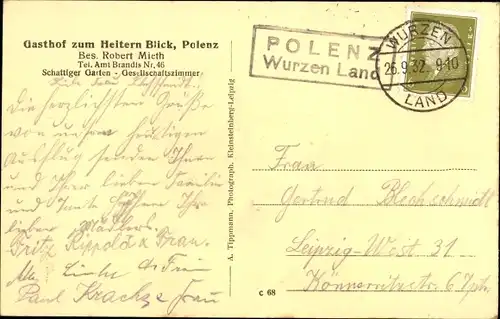 Gasthof zum Heitern Blick, Polenz
Bes. Robert Mieth
Tel. Amt Brandis Nr. 46
Schattiger Garten - Gesellschaftszimmer
Die herzlichsten Grüße
von unserm heutigen
Ausflug senden Ihnen
und Ihrer lieben Familie
und Tante
lieber
Fritz Rippold u Frau.
Paul Krachze Frau
A. Tippmann, Photograph. Kleinsteinberg-Leipzig
POLENZ
Wurzen Land
WURZEN
26.9.32. 9-10
LAND
Frau
Gertrud Blechschmidt
Leipzig-West 31
Könneritzstr. 67
c 68